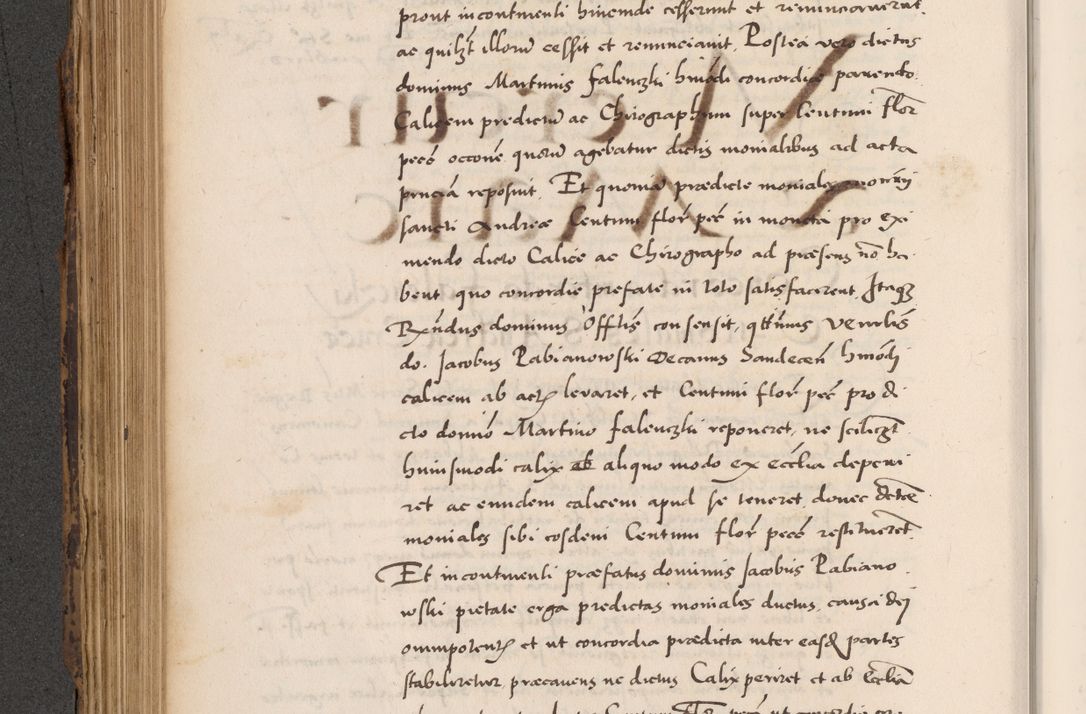 prout incontinenti hincinde cesserunt et renunciaverunt,
ac quilz̃t illorũ cessit et renunciavit. Postea vero dictus
dominus Martinus Falenczki hm̃odi concordiæ parendo
Calicem predictũ ac Chirographum super Centum flor̃
pecc̃ occõne quorũ agebatur dictis monialibus ad acta
pñcia reposuit. Et quoniã prædictæ moniales
sancti Andreæ Centum flor̃ pec̃ in moneta pro exi
mendo dicto Calice ac Chirographo ad præsens nõ ha
bent, quo concordiæ prefate in toto satisfacerent. Itaq3
Rx̃ndus dominus Offtis consensit, qtt̃nus Ven̄rbis
do. Jacobus Pabianowski Decanus Sandecen̄ hm̃odi
calicem ab actꝭ levaret, et Centum flor̃ pec̃ pro di
cto domiõ Martino Falenczki reponeret, ne scilicz̃t
huiusmodi calix ab aliquo modo ex eccl̃ia deperi
ret ac eundem calicem apud se teneret, donec dictæ
moniales sibi eosdem Centum flor̃ pecc̃ restituerẽt.
Et incontinenti præfatus dominus Jacobus Pabiano
wski pietate erga predictas moniales ductus, causa dej
omnipotentꝭ et ut concordia prædicta inter easdẽ partes
stabiliretur, præcavens ne dictus Calix periret et ab Eccl̃ia